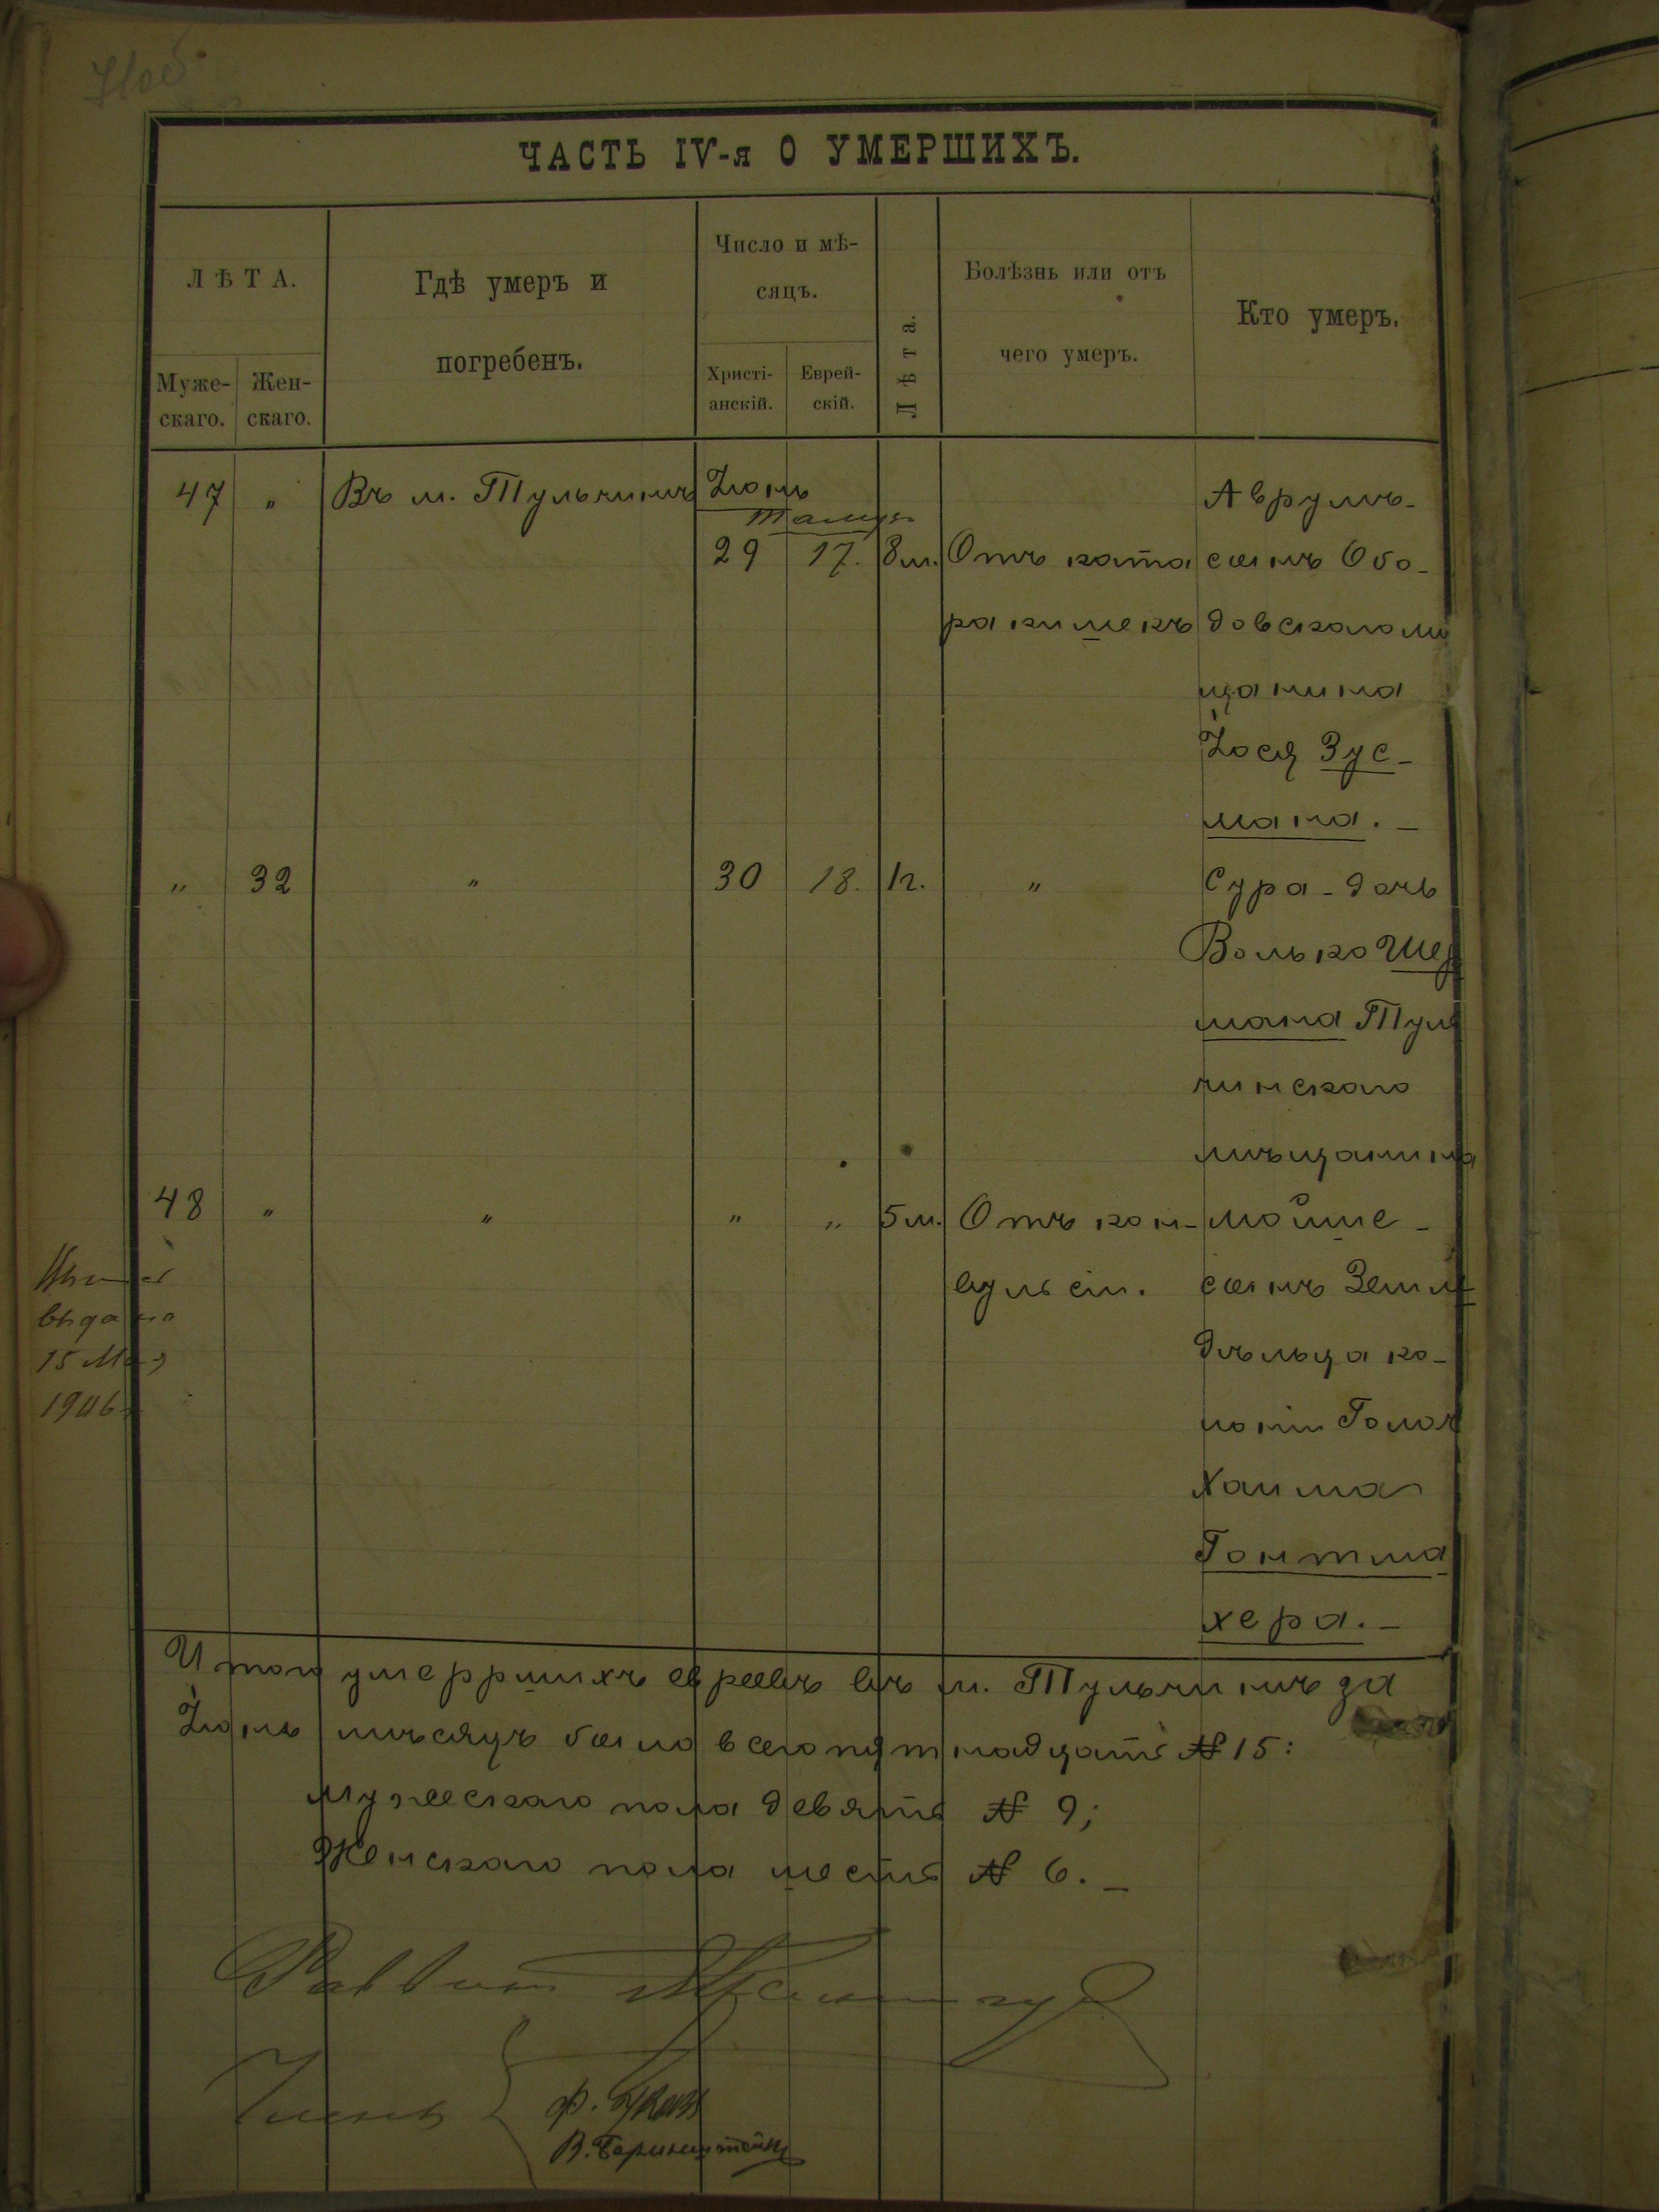 71об
ЧАСТЬ IV-я О УМЕРШИХЪ.
ЛѢТА.
Муже-
скаго.
Жен-
скаго.
Гдѣ умеръ и
погребенъ.
Число и мѣ-
сяцъ.
Христі-
анскій.
Еврей-
скій.
Лѣта.
Болѣзнь или отъ
чего умеръ.
Кто умеръ.
47 " Въ м. Тульчинѣ Іюнь Аврумъ-
Тамузъ
29 17. 8 м. Отъ ката сынъ Обо-
ра кишекъ довскаго мѣ
щанина
Іося Зус-
мана. -
" 32 " 30 18. 1 г. " Сура - дочь
Волько Шер
мана Туль
чинскаго
мѣщанина
48 " " " " 5 м. Отъ кон- Мойше -
вульсіи. сынъ Земле
дѣльца ко-
лоніи
Хаима
Гонтма
хера. -
выдано
15 Мая
1906
Итого умерршихъ евреевъ въ м. Тульчинѣ за
Іюнь мѣсяцъ было всего пятнадцать № 15:
мужескаго пола девять № 9;
Женскаго пола шесть № 6. -
Раввинъ
Члены
Ф.
В. Беринштейнъ